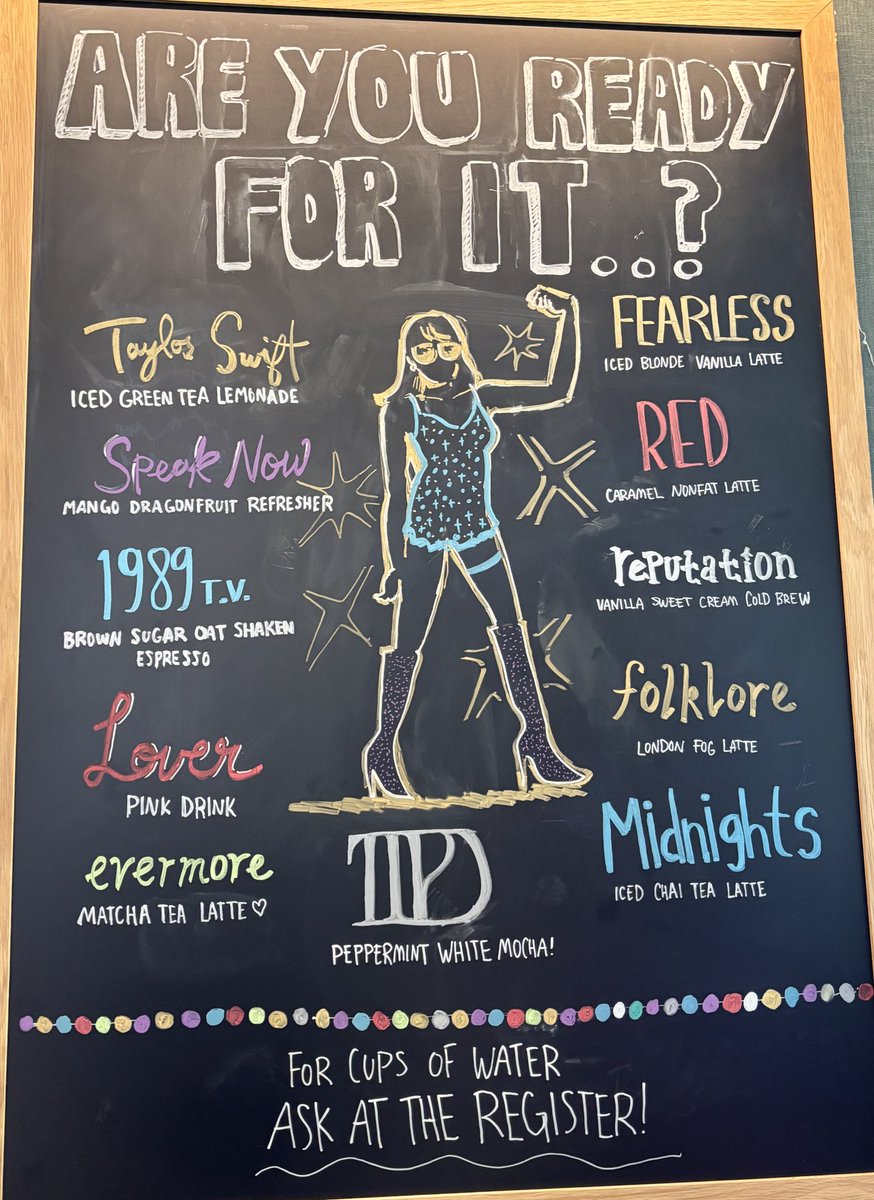 ARE YOU READY
FOR IT...?
Taylor Swift
ICED GREEN TEA LEMONADE
Speak Now
MANGO DRAGONFRUIT REFRESHER
1989 T.V.
BROWN SUGAR OAT SHAKEN
ESPRESSO
Lover
PINK DRINK
evermore
MATCHA TEA LATTE♡
FEARLESS
ICED BLONDE VANILLA LATTE
RED
CARAMEL NONFAT LATTE
reputation
VANILLA SWEET CREAM COLD BREW
folklore
LONDON FOG LATTE
Midnights
ICED CHAI TEA LATTE
TTPD
PEPPERMINT WHITE MOCHA!
FOR CUPS OF WATER
ASK AT THE REGISTER!